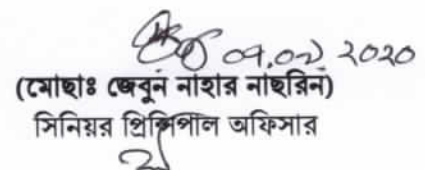 ০৭.০৯ ২০২০
(মোছাঃ জেবুন নাহার নাছরিন)
সিনিয়র প্রিন্সিপাল অফিসার